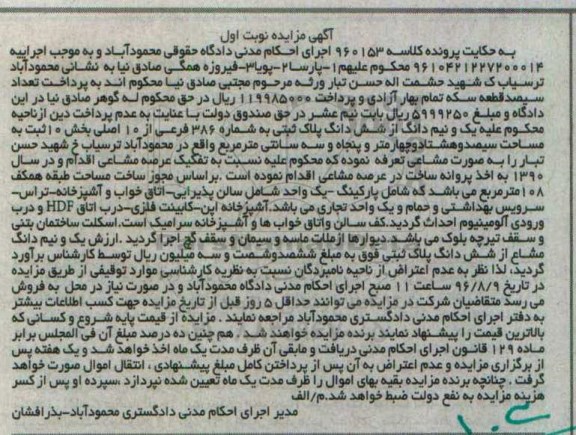 آگهی مزایده نوبت اول
به حکایت پرونده کلاسه ۹۶۰۱۵۳ اجرای احکام مدنی دادگاه حقوقی محمودآباد و به موجب اجراییه
۹۶۱۰۴۲۱۲۲۷۲۰۰۰۱۴ محکوم علیهم۱-پارسا۲-پویا۳-فیروزه همگی صادق نیا به نشانی محمودآباد
ترسیاب ک شهید حشمت اله حسن تبار ورثه مرحوم مجتبی صادق نیا محکوم اند به پرداخت تعداد
سیصدقطعه سکه تمام بهار آزادی و پرداخت ۱۱۹۹۸۵۰۰۰ ریال در حق محکوم له گوهر صادق نیا در این
دادگاه و مبلغ ۵۹۹۹۲۵۰ ریال بابت نیم عشر در حق صندوق دولت با عنایت به عدم پرداخت دین ازناحیه
محکوم علیه یک و نیم دانگ ازشش دانگ پلاک ثبتی به شماره ۳۸۶ فرعی از ۱۰ اصلی بخش ۱۰ثبت به
مساحت سیصدوهشتادوچهارمتر و پنجاه و سه سانتی مترمربع واقع در محمودآباد ترسیاب خ شهید حسن
تبار را به صورت مشاعی تعرفه نموده که محکوم علیه نسبت به تفکیک عرصه مشاعی اقدام و در سال
۱۳۹۰ به اخذ پروانه ساخت در عرصه مشاعی اقدام نموده است .براساس مجوز ساخت مساحت طبقه همکف
۱۰۸مترمربع می باشد که شامل پارکینگ -یک واحد شامل سالن پذیرایی-اتاق خواب و آشپزخانه-تراس-
سرویس بهداشتی و حمام و یک واحد تجاری می باشد.آشپزخانه اپن-کابینت فلزی-درب اتاق HDF و درب
ورودی آلومینیوم احداث گردید.کف سالن واتاق خواب ها و آشپزخانه سرامیک است.اسکلت ساختمان بتنی
و سقف تیرچه بلوک می باشد. دیوارها ازملات ماسه و سیمان و سقف گچ اجرا گردید .ارزش یک و نیم دانگ
مشاع از شش دانگ پلاک ثبتی فوق به مبلغ ششصدوشصت و سه میلیون ریال توسط کارشناس برآورد
گردید، لذا نظر به عدم اعتراض از ناحیه نامبردگان نسبت به نظریه کارشناسی موارد توقیفی از طریق مزایده
در تاریخ ۹۶/۸/۹ ساعت ۱۱ صبح اجرای احکام مدنی دادگاه محمودآباد و در صورت نیاز در محل به فروش
می رسد متقاضیان شرکت در مزایده می توانند حداقل ۵ روز قبل از تاریخ مزایده جهت کسب اطلاعات بیشتر
به دفتر اجرای احکام مدنی دادگستری محمودآباد مراجعه نمایند . مزایده از قیمت پایه شروع و کسانی که
بالاترین قیمت را پیشنهاد نمایند برنده مزایده خواهند شد. هم چنین ده درصد مبلغ آن فی المجلس برابر
ماده ۱۲۹ قانون اجرای احکام مدنی دریافت و مابقی آن ظرف مدت یک ماه اخذ خواهد شد و یک هفته پس
از برگزاری مزایده و عدم اعتراض به آن پس از پرداختن کامل مبلغ پیشنهادی ، انتقال اموال صورت خواهد
گرفت . چنانچه برنده مزایده بقیه بهای اموال را ظرف مدت یک ماه تعیین شده نپردازد ،سپرده او پس از کسر
هزینه مزایده به نفع دولت ضبط خواهد شد.م/الف
مدیر اجرای احکام مدنی دادگستری محمودآباد-بذرافشان